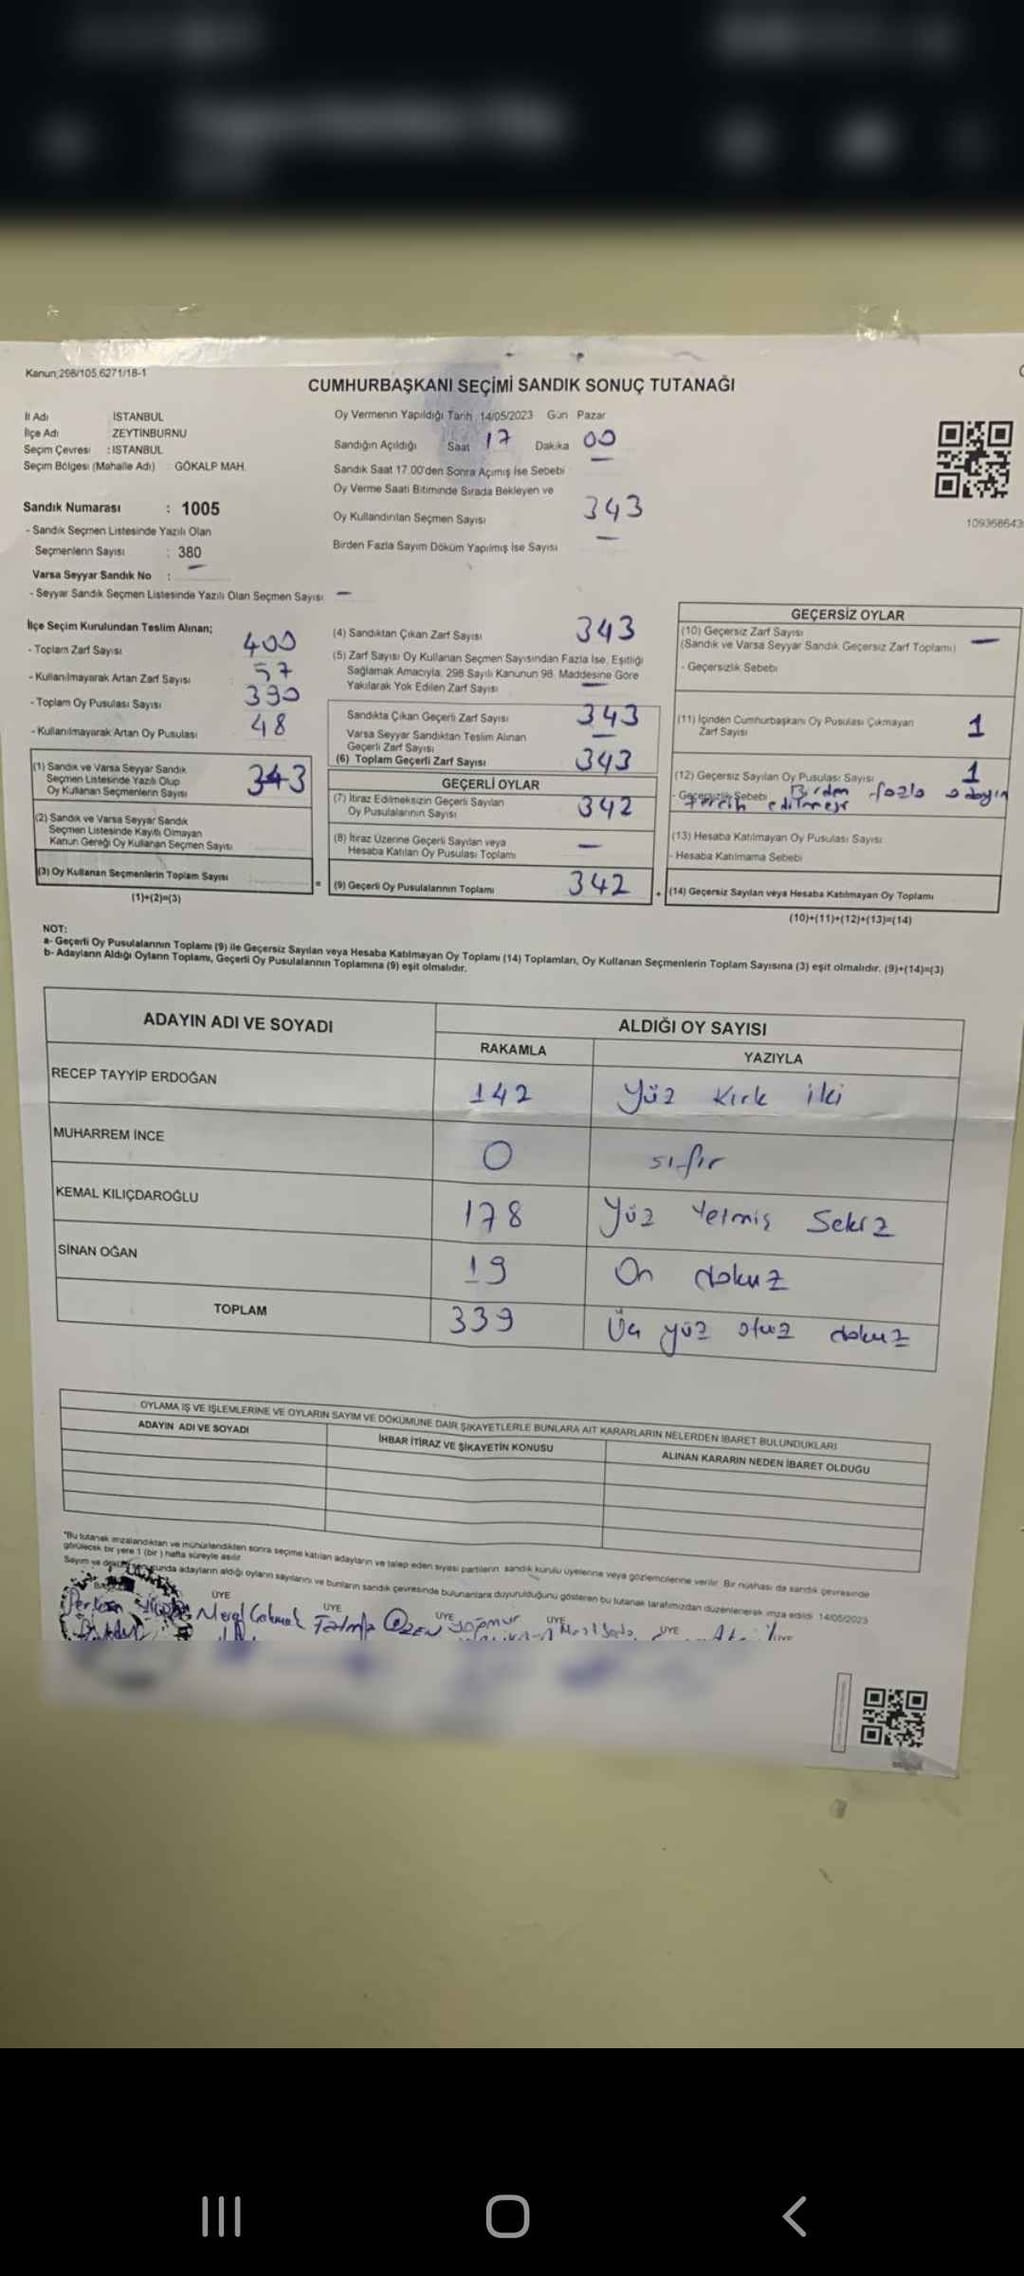 Kanun;298/105,6271/18-1
CUMHURBAŞKANI SEÇİMİ SANDIK SONUÇ TUTANAĞI
İl Adı İSTANBUL
İlçe Adı ZEYTİNBURNU
Seçim Çevresi : İSTANBUL
Seçim Bölgesi (Mahalle Adı) : GÖKALP MAH.
Oy Vermenin Yapıldığı Tarih 14/05/2023 Gün Pazar
Sandığın Açıldığı Saat 17 Dakika 00
Sandık Saat 17.00'den Sonra Açımış İse Sebebi
Oy Verme Saati Bitiminde Sırada Bekleyen ve
Oy Kullandırılan Seçmen Sayısı 343
Birden Fazla Sayım Döküm Yapılmış İse Sayısı —
109368643
Sandık Numarası : 1005
- Sandık Seçmen Listesinde Yazılı Olan
Seçmenlerin Sayısı : 380
Varsa Seyyar Sandık No : —
- Seyyar Sandık Seçmen Listesinde Yazılı Olan Seçmen Sayısı: —
İlçe Seçim Kurulundan Teslim Alınan;
- Toplam Zarf Sayısı 400
- Kullanılmayarak Artan Zarf Sayısı 57
- Toplam Oy Pusulası Sayısı 390
- Kullanılmayarak Artan Oy Pusulası 48
(1) Sandık ve Varsa Seyyar Sandık
Seçmen Listesinde Yazılı Olup
Oy Kullanan Seçmenlerin Sayısı 343
(2) Sandık ve Varsa Seyyar Sandık
Seçmen Listesinde Kayıtlı Olmayan
Kanun Gereği Oy Kullanan Seçmen Sayısı
(3) Oy Kullanan Seçmenlerin Toplam Sayısı
(1)+(2)=(3)
(4) Sandıktan Çıkan Zarf Sayısı 343
(5) Zarf Sayısı Oy Kullanan Seçmen Sayısından Fazla İse, Eşitliği
Sağlamak Amacıyla, 298 Sayılı Kanunun 98. Maddesine Göre
Yakılarak Yok Edilen Zarf Sayısı —
Sandıkta Çıkan Geçerli Zarf Sayısı 343
Varsa Seyyar Sandıktan Teslim Alınan
Geçerli Zarf Sayısı —
(6) Toplam Geçerli Zarf Sayısı 343
GEÇERLİ OYLAR
(7) İtiraz Edilmeksizin Geçerli Sayılan
Oy Pusulalarının Sayısı 342
(8) İtiraz Üzerine Geçerli Sayılan veya
Hesaba Katılan Oy Pusulası Toplamı —
= (9) Geçerli Oy Pusulalarının Toplamı 342 +
GEÇERSİZ OYLAR
(10) Geçersiz Zarf Sayısı
(Sandık ve Varsa Seyyar Sandık Geçersiz Zarf Toplamı) —
- Geçersizlik Sebebi
(11) İçinden Cumhurbaşkanı Oy Pusulası Çıkmayan
Zarf Sayısı 1
(12) Geçersiz Sayılan Oy Pusulası Sayısı 1
- Geçersizlik Sebebi Birden fazla adayın
tercih edilmesi
(13) Hesaba Katılmayan Oy Pusulası Sayısı
- Hesaba Katılmama Sebebi
(14) Geçersiz Sayılan veya Hesaba Katılmayan Oy Toplamı
(10)+(11)+(12)+(13)=(14)
NOT:
a- Geçerli Oy Pusulalarının Toplamı (9) ile Geçersiz Sayılan veya Hesaba Katılmayan Oy Toplamı (14) Toplamları, Oy Kullanan Seçmenlerin Toplam Sayısına (3) eşit olmalıdır. (9)+(14)=(3)
b- Adayların Aldığı Oyların Toplamı, Geçerli Oy Pusulalarının Toplamına (9) eşit olmalıdır.
ADAYIN ADI VE SOYADI ALDIĞI OY SAYISI
RAKAMLA YAZIYLA
RECEP TAYYİP ERDOĞAN 142 Yüz Kırk iki
MUHARREM İNCE 0 sıfır
KEMAL KILIÇDAROĞLU 178 Yüz Yetmiş Sekiz
SİNAN OĞAN 19 On dokuz
TOPLAM 339 Üç yüz otuz dokuz
OYLAMA İŞ VE İŞLEMLERİNE VE OYLARIN SAYIM VE DÖKÜMÜNE DAİR ŞİKAYETLERLE BUNLARA AİT KARARLARIN NELERDEN İBARET BULUNDUKLARI
ADAYIN ADI VE SOYADI İHBAR İTİRAZ VE ŞİKAYETİN KONUSU ALINAN KARARIN NEDEN İBARET OLDUĞU
*Bu tutanak imzalandıktan ve mühürlendikten sonra seçime katılan adayların ve talep eden siyasi partilerin sandık kurulu üyelerine veya gözlemcilerine verilir. Bir nüshası da sandık çevresinde
görülecek bir yere 1 (bir) hafta süreyle asılır
Sayım ve döküm sonucunda adayların aldığı oyların sayılarını ve bunların sandık çevresinde bulunanlara duyurulduğunu gösteren bu tutanak tarafımızdan düzenlenerek imza edildi. 14/05/2023
ÜYE ÜYE ÜYE ÜYE ÜYE ÜYE
Fatma ÖZEN